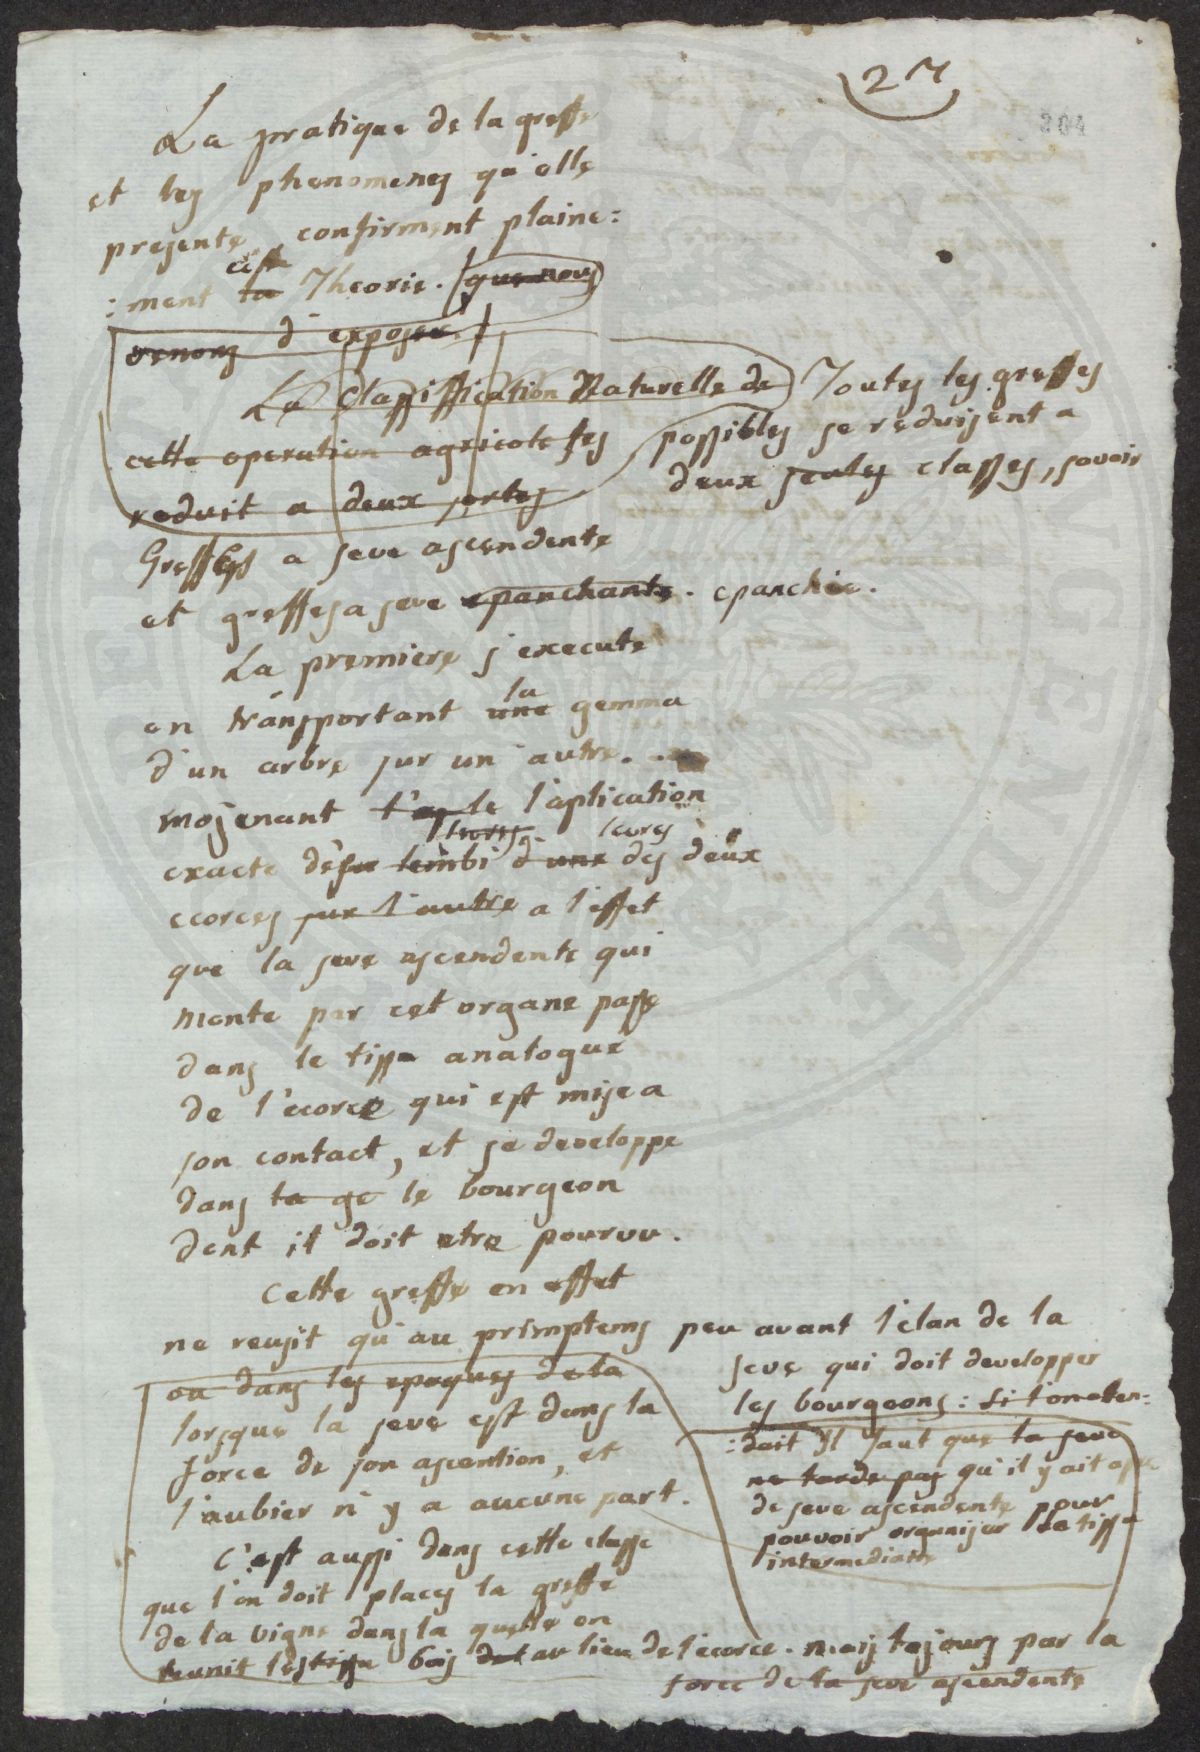 27
304
La pratique de la greffe
et les phenomenes qu'elle
presente, confirment plaine=
:ment la cette Theorie. que nous
venons d'exposer.
La Classiffication Naturelle de
cette operation agricole ses
reduit a deux sortes
Toutes les greffes
possibles se reduisent a
deux seules classes, savoir
Greffes a seve ascendente
et greffes a seve epanchante. epanchée.
La premiere s'execute
en transportant une la gemma
d'un arbre sur un autre.
mojenant l'aplication
exacte des d'une leures des deux
ecorces sur l'autre a l'effet
que la seve ascendente qui
monte par cet organe passe
dans le tissu analogue
de l'ecorce qui est mise a
son contact, et se developpe
dans la ge le bourgeon
dont il doit etre pourvu.
Cette greffe en effet
ne reusit qu'au primptems peu avant l'elan de la
seve qui doit developper
les bourgeons: si l'on aten=
:dait Il faut que la seve
ne tarde pas qu'il y ait
de seve ascendente pour
pouvoir organiser le tissu
intermediate
ou dans les epoques de la
lorsque la seve est dans la
force de son ascention, et
l'aubier n'y a aucune part.
C'est aussi dans cette classe
que l'on doit placer la greffe
de la vigne dans la quelle on
reunit les tissu bois au lieu de l'ecorce. mais toujours par la
force de la seve ascendente